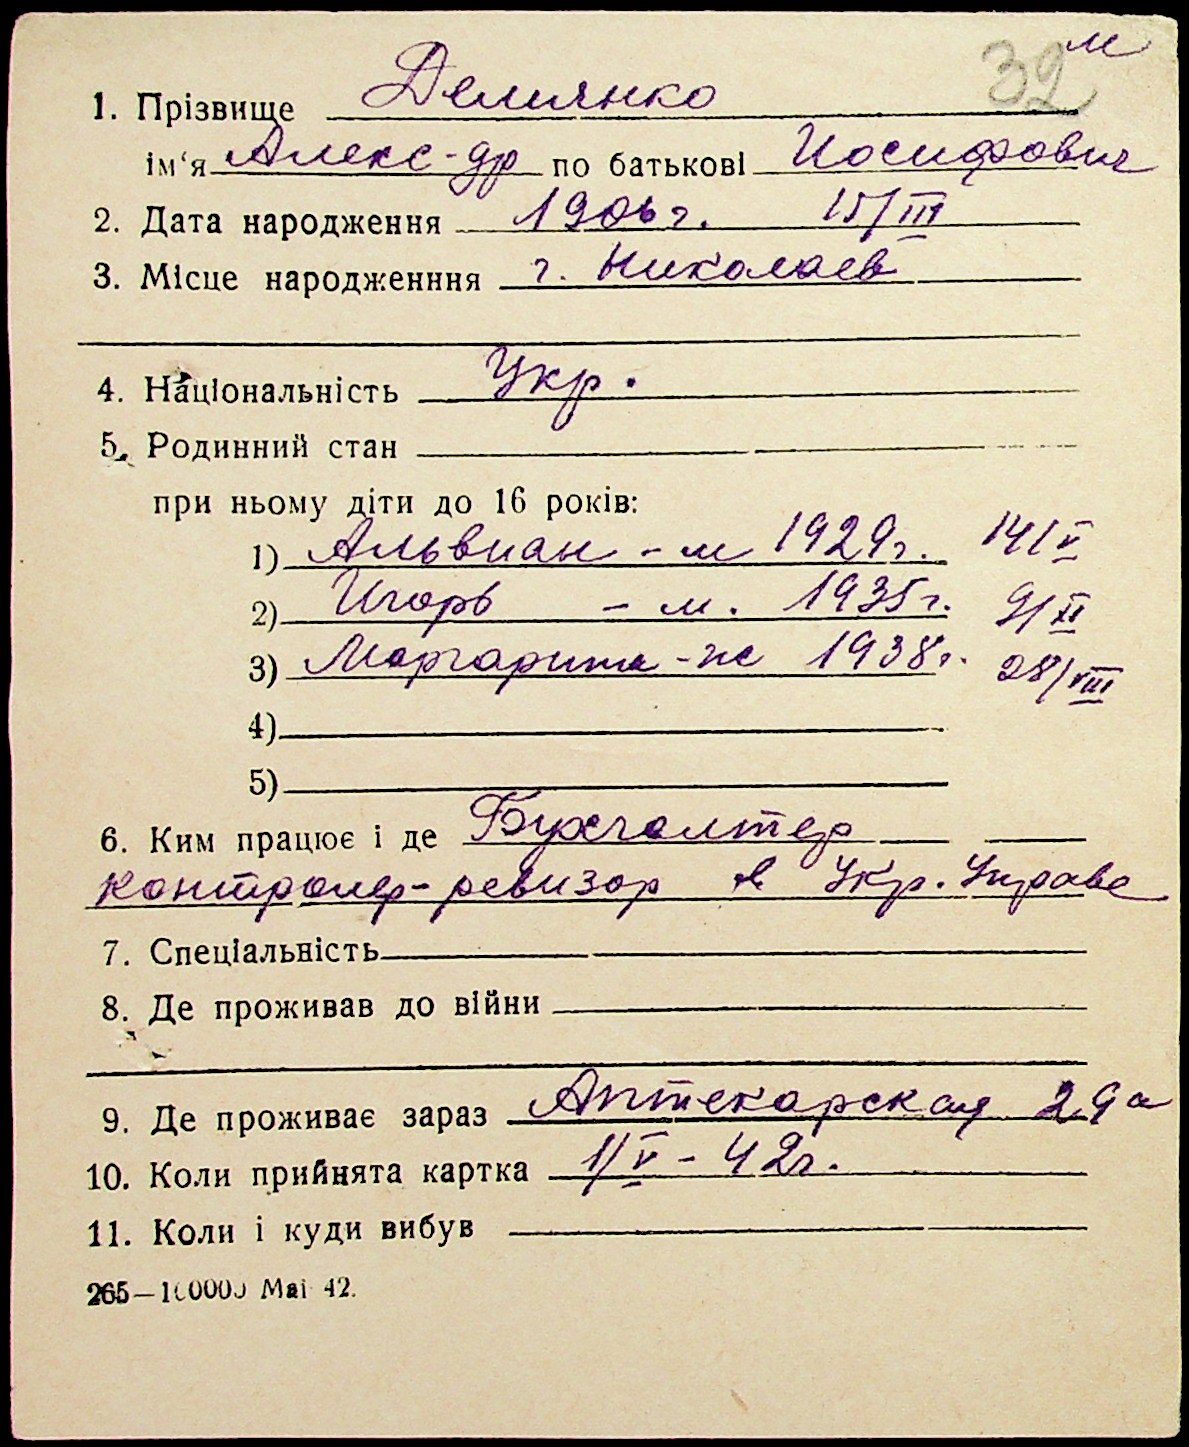 32 м
1. Прізвище Демянко
ім‘я Алекс-др по батькові Иосифович
2. Дата народження 1906 г. 15/III
3. Місце народженння г. Николаев
4. Національність Укр.
5. Родинний стан
при ньому діти до 16 років:
1) Альвиан - м 1929г. 14/V
2) Игорь - м. 1935г. 9/XI
3) Маргарита - ж 1938г. 28/VIII
4)
5)
6. Ким працює і де Бухгалтер
контролер-ревизор в Укр. Управе
7. Спеціальність
8. Де проживав до війни
9. Де проживає зараз Аптекарская 29а
10. Коли прийнята картка 1/V - 42г.
11. Коли і куди вибув
265—100000 Mai 42.